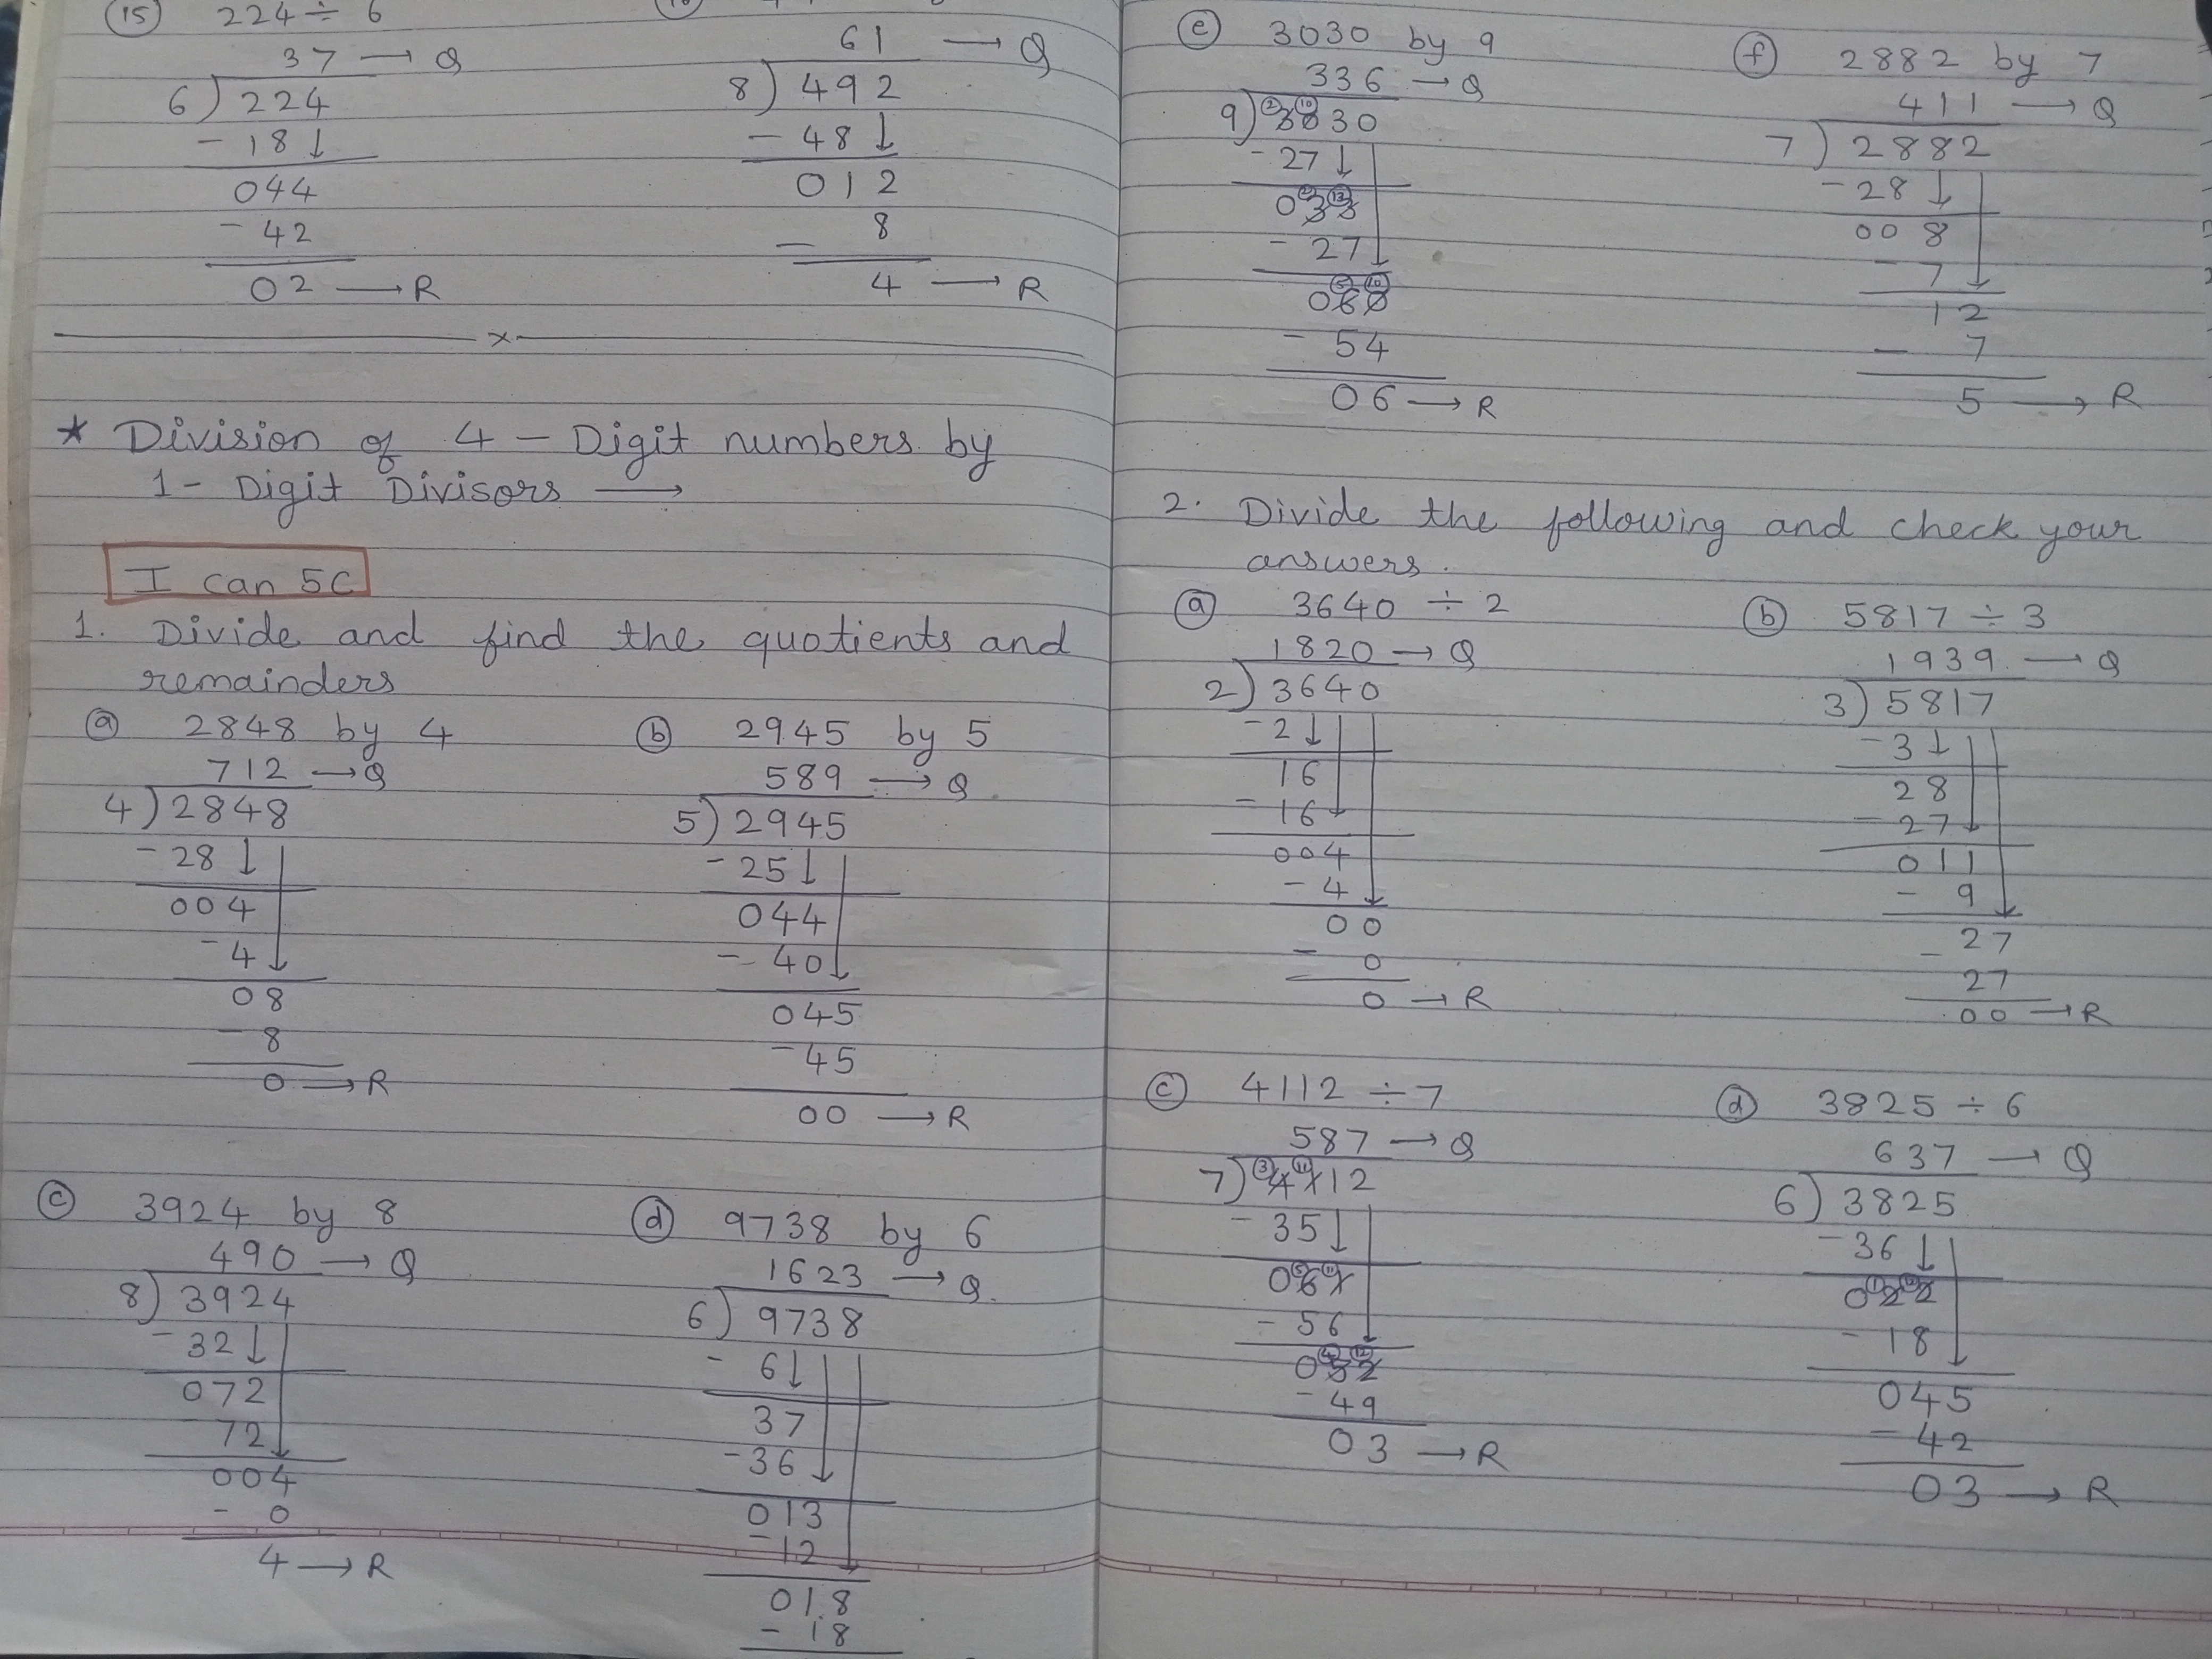 (15) 224 ÷ 6
37 → Q
6) 224
- 18↓
044
- 42
02 → R
61 → Q
8) 492
- 48↓
012
- 8
4 → R
x
* Division of 4 - Digit numbers by
1 - Digit Divisors →
I can 5C
1. Divide and find the quotients and
remainders
(a) 2848 by 4
712 → Q
4) 2848
- 28↓
004
- 4↓
08
- 8
0 → R
(b) 2945 by 5
589 → Q
5) 2945
- 25↓
044
- 40↓
045
- 45
00 → R
(c) 3924 by 8
490 → Q
8) 3924
- 32↓
072
72↓
004
- 0
4 → R
(d) 9738 by 6
1623 → Q
6) 9738
- 6↓
37
- 36↓
013
- 12↓
018
- 18
(e) 3030 by 9
336 → Q
(2) (10)
9) 3030
- 27↓
(2) (13)
033
- 27↓
(5) (10)
060
- 54
06 → R
(f) 2882 by 7
411 → Q
7) 2882
- 28↓
008
- 7↓
12
- 7
5 → R
2. Divide the following and check your
answers.
(a) 3640 ÷ 2
1820 → Q
2) 3640
- 2↓
16
- 16↓
004
- 4↓
00
- 0
0 → R
(b) 5817 ÷ 3
1939 → Q
3) 5817
- 3↓
28
- 27↓
011
- 9↓
27
- 27
00 → R
(c) 4112 ÷ 7
587 → Q
(3) (11)
7) 4112
- 35↓
(5) (11)
061
- 56↓
(4) (12)
052
- 49
03 → R
(d) 3825 ÷ 6
637 → Q
6) 3825
- 36↓
(1) (12)
022
- 18↓
045
- 42
03 → R